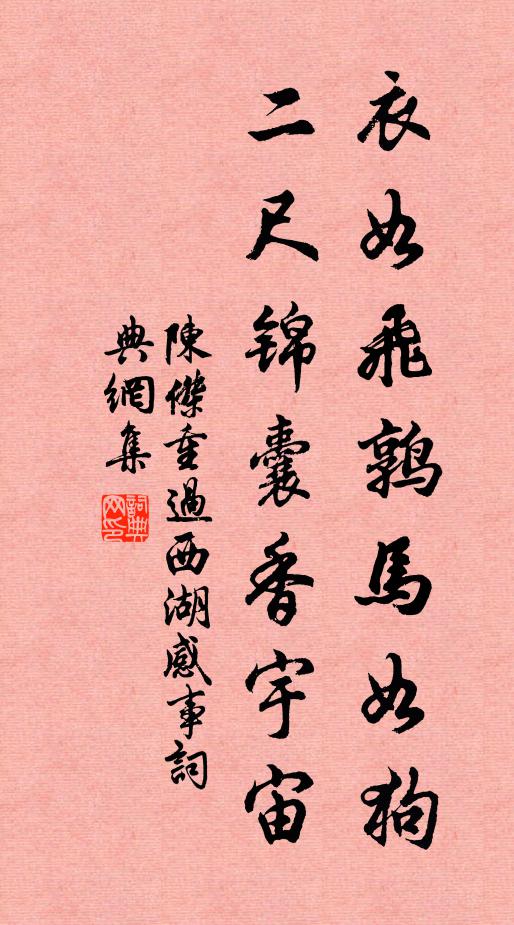 衣如飛鶉馬如狗
二尺锦囊香宇宙
陳傑重過西湖感事詞
典網集
詞典网印